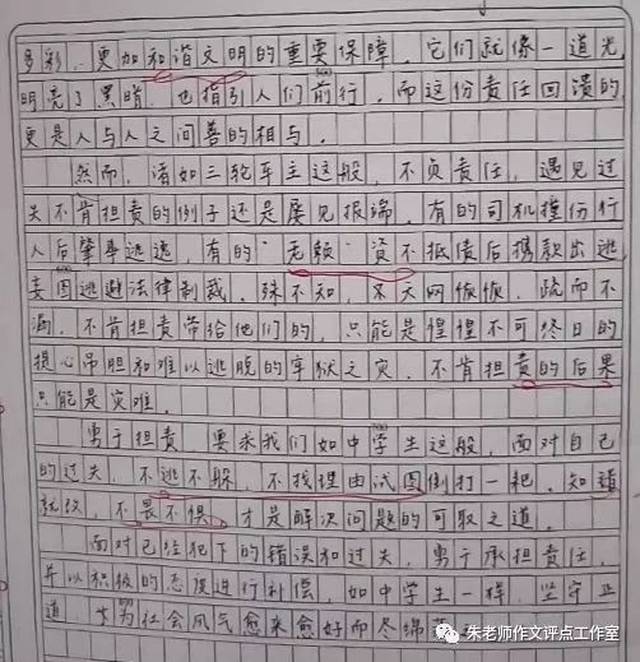 多彩、更加和谐文明的重要保障，它们就像一道光
明亮了黑暗，也指引人们前行，而这份责任回馈的
更是人与人之间善的相与。
然而，诸如三轮车主这般，不负责任，遇见过
失不肯担责的例子还是屡见报端，有的司机撞伤行
人后肇事逃逸，有的“无赖”资不抵债后携款出逃
妄图逃避法律制裁，殊不知，天网恢恢，疏而不
漏，不肯担责带给他们的，只能是惶惶不可终日的
提心吊胆和难以逃脱的牢狱之灾，不肯担责的后果
只能是灾难。
勇于担责，要求我们如中学生这般，面对自己
的过失，不逃不躲，不找理由试图倒打一耙，知错
就改，不畏不惧，才是解决问题的可取之道。
面对已经犯下的错误和过失，勇于承担责任，
并以积极的态度进行补偿，如中学生一样，坚守正
道，为社会风气愈来愈好而尽绵
朱老师作文评点工作室